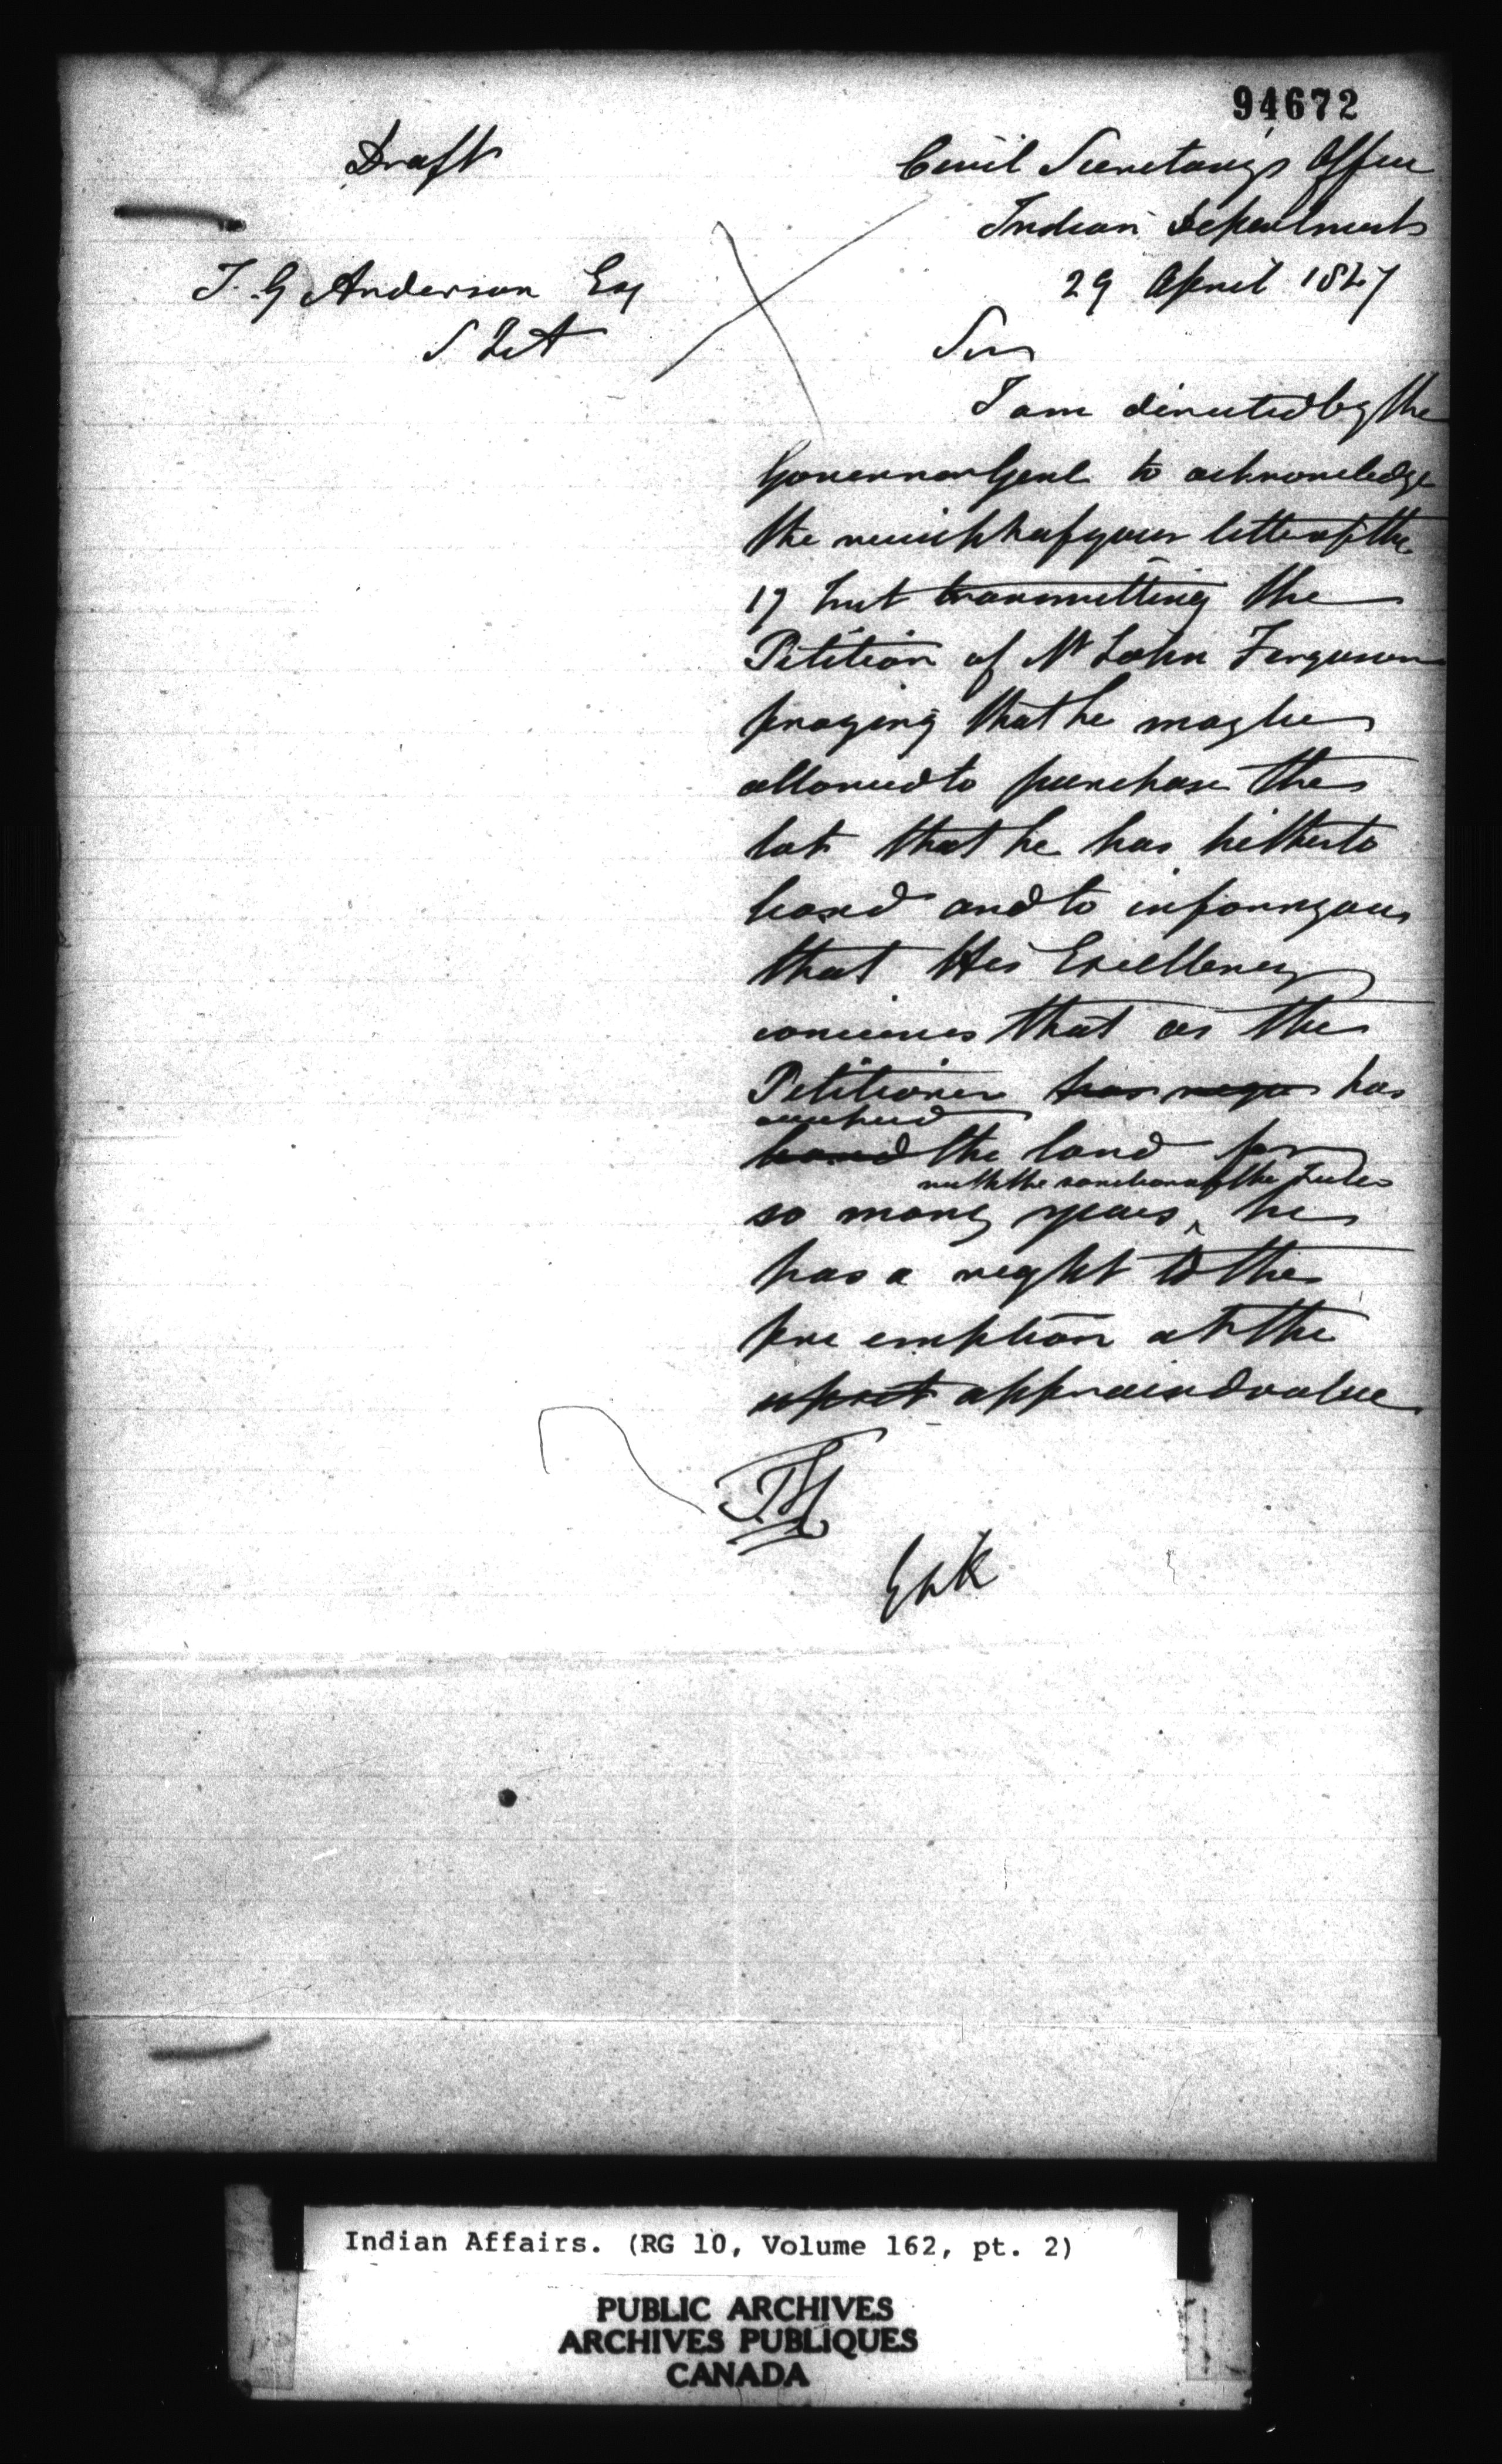 94672
Draft
Civil Secretary's Office
Indian Department
29 April 1847
T. G Anderson Esq
Sir
I am directed by the
Governor Genl to acknowledge
the receipt of your letter of the
17 Inst transmitting the
Petition of Mr John Ferguson
praying that he may be
allowed to purchase the
lot that he has hitherto
leased and to inform you
that His Excellency
conceives that as the
Petitioner has has
occupied
leased the land for
with the sanction of the Indes
so many years ^ he
has a right to the
pre emption at the
upset appraised value
TH
Indian Affairs. (RG 10, Volume 162, pt. 2)
PUBLIC ARCHIVES
ARCHIVES PUBLIQUES
CANADA